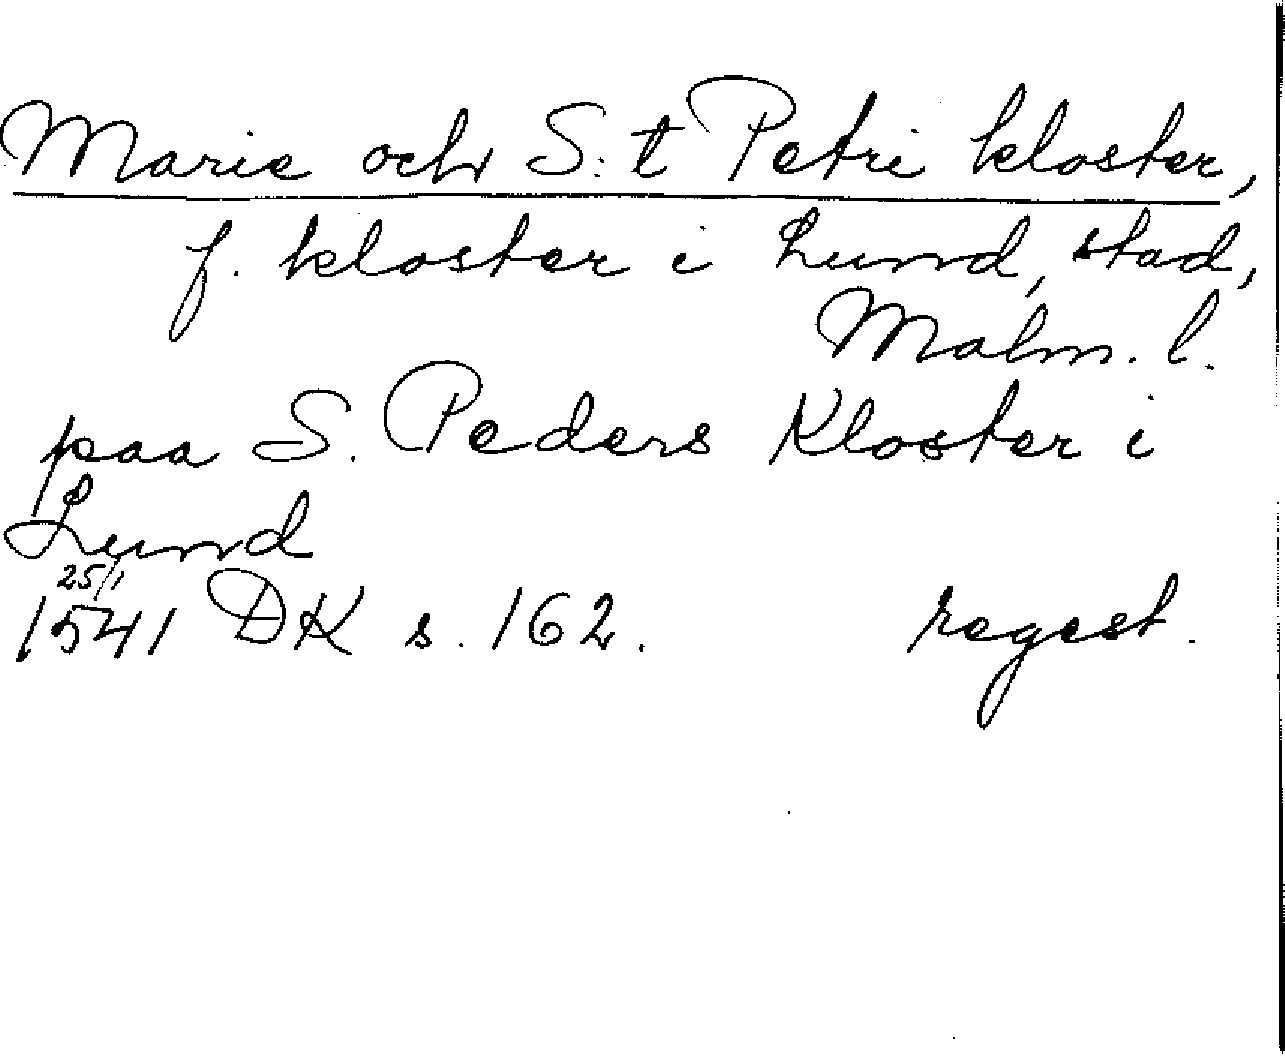 Marie och S:t Petri kloster,
f. kloster i Lund, stad,
Malm. l.
paa S. Peders Kloster i
Lund
25/1
1541 DK s. 162. regest.